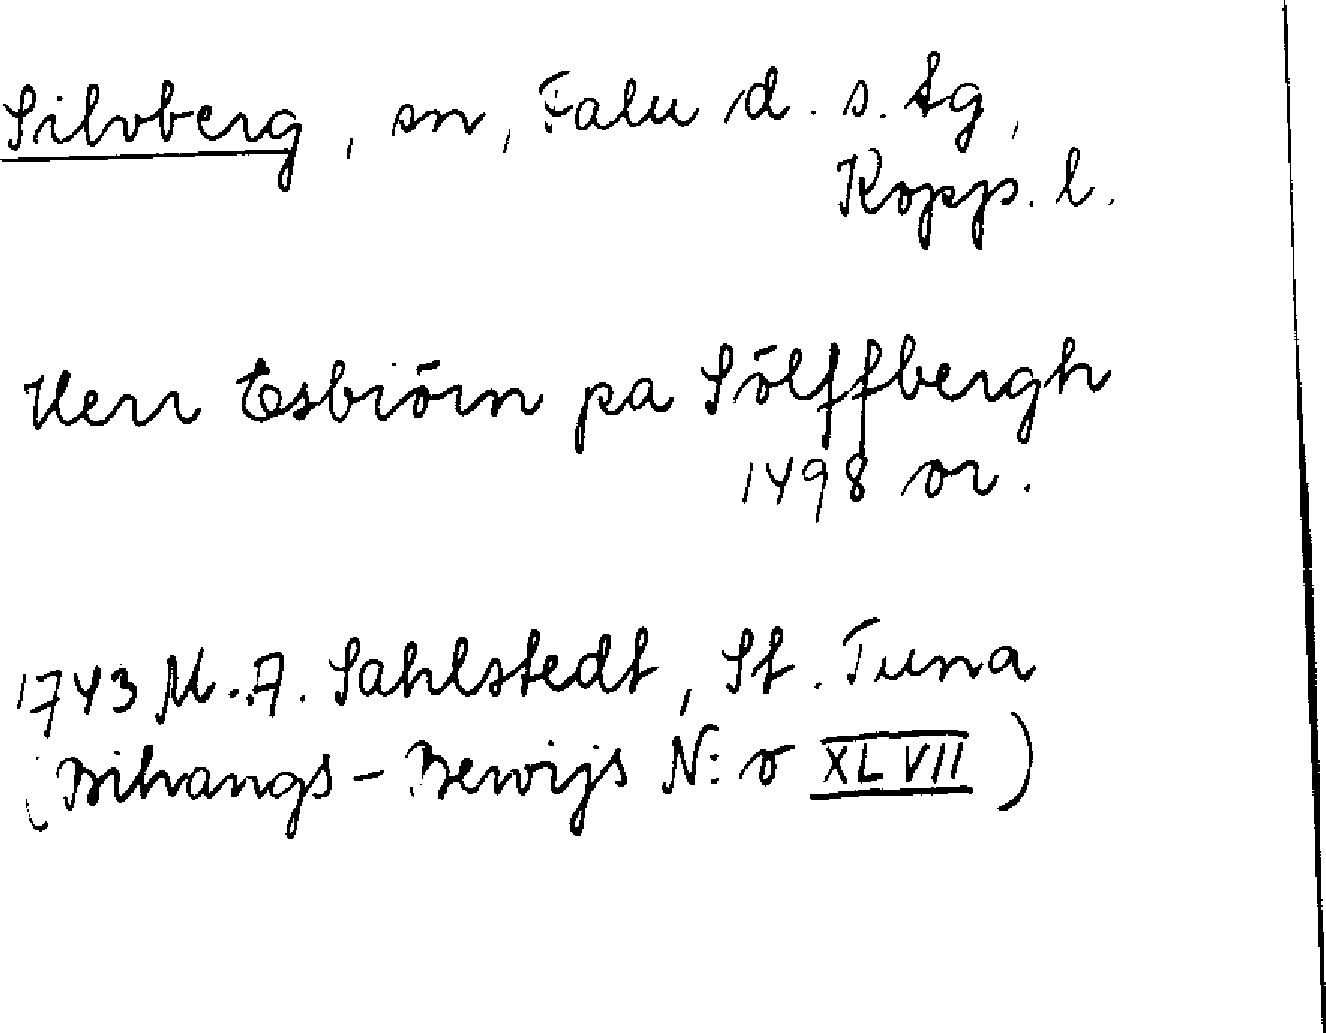 Silvberg, sn, Falu d. s. tg,
Kopp. l.
Herr Esbiörn pa Sölffbergh
1498 or.
1743 M. A. Sahlstedt, St. Tuna
(Bihangs-Bewijs N:o XLVII)